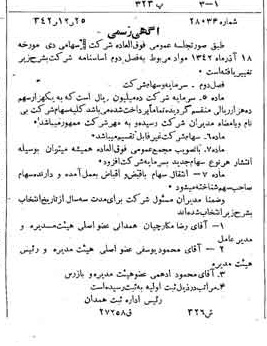 ۱-۳ ب ۳۲۳
شماره ۲۸۰۳۳ ۲۵ر۱۲ر۳۴۲
آگهی رسمی
طبق صورتجلسه عمومی فوق‌العاده شرکت سهامی دی مورخه
۱۸ آذرماه ۱۳۴۲ مواد مربوط به فصل دوم اساسنامه شرکت بشرح زیر
تغییر یافته است
فصل دوم - سرمایه و سهام شرکت
ماده ۵. سرمایه شرکت ده میلیون ریال است که به یکهزار سهم
ده هزار ریالی منقسم گردیده تماما پرداخت شده میباشد کلیه سهام شرکت بی
نام و بامضاء مدیران شرکت رسیده و به مهر شرکت ممهور میباشد
ماده ۶. سهام شرکت غیر قابل تقسیم میباشد
ماده ۷. با تصویب مجمع عمومی فوق‌العاده همیشه میتوان بوسیله
انتشار هر نوع سهام جدید بسرمایه شرکت افزود
ماده ۷ - انتقال سهام باقبض و اقباض بعمل آمده و دارنده سهام
صاحب سهم شناخته میشود
وضمنا مدیران مسئول شرکت برای مدت سه سال از تاریخ انتخاب
بشرح زیر انتخاب شده‌اند
۱- آقای رضا مکارچیان همدانی عضو اصلی هیئت مدیره و
مدیر عامل
۲ - آقای محمود یوسفی عضو اصلی هیئت مدیره و رئیس
هیئت مدیره
۳. آقای محمود ادهمی عضو هیئت مدیره و بازرس
۴. مراتب در ذیل ثبت اولیه به ثبت رسیده است
رئیس اداره ثبت همدان
ش ۳۲۶ ق ۲۷۲۵۸